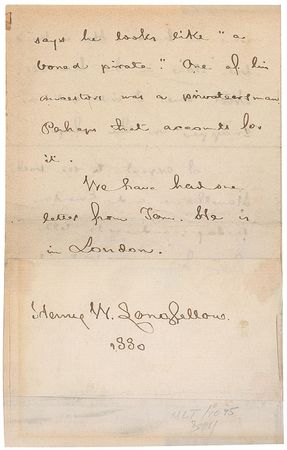 says he looks like "a
bored pirate." One of his
ancestors was a privateersman
Perhaps that accounts for
it.
We have had one
letter from Tom. He is
in London.
Henry W. Longfellow.
1880